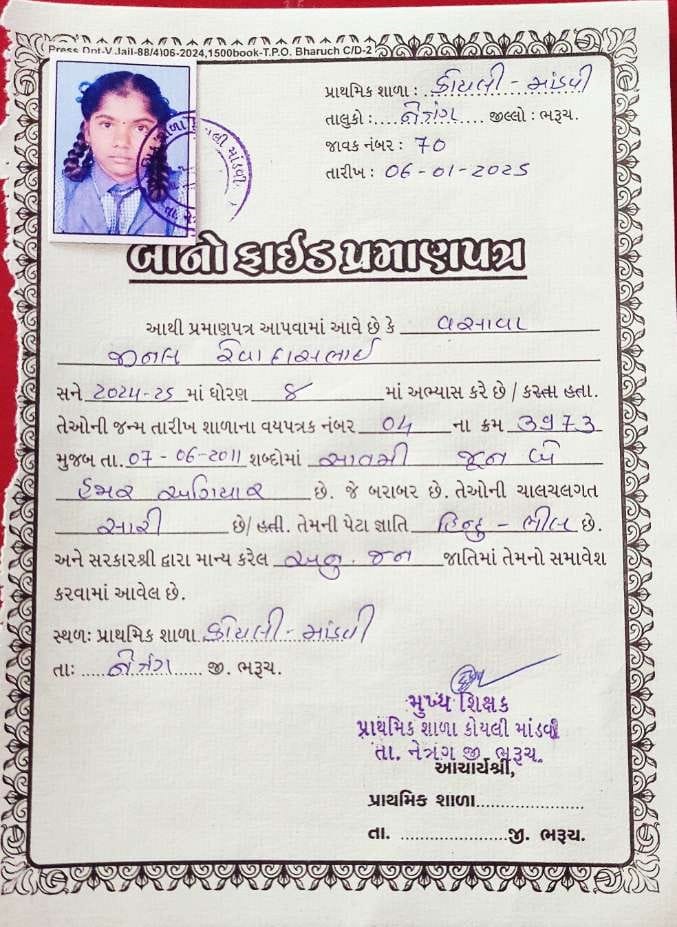 Press Dpt-V.Jail-88/4)06-2024,1500book-T.P.O. Bharuch C/D-2
પ્રાથમિક શાળા : કોયલી - માંડવી
તાલુકો : નેત્રંગ જીલ્લો : ભરૂચ.
જાવક નંબર : 70
તારીખ : 06-01-2025
બોનો ફાઈડ પ્રમાણપત્ર
આથી પ્રમાણપત્ર આપવામાં આવે છે કે વસાવા
જીનલ રેવાદાસભાઈ
સને 2024-25 માં ધોરણ ૪ માં અભ્યાસ કરે છે / કરતા હતા.
તેઓની જન્મ તારીખ શાળાના વયપત્રક નંબર 04 ના ક્રમ 3973
મુજબ તા. 07-06-2011 શબ્દોમાં સાતમી જૂન બે
હજાર અગિયાર છે. જે બરાબર છે. તેઓની ચાલચલગત
સારી છે/ હતી. તેમની પેટા જ્ઞાતિ હિન્દુ - ભીલ છે.
અને સરકારશ્રી દ્વારા માન્ય કરેલ અનુ. જન જાતિમાં તેમનો સમાવેશ
કરવામાં આવેલ છે.
સ્થળઃ પ્રાથમિક શાળા કોયલી - માંડવી
તાઃ નેત્રંગ જી. ભરૂચ.
મુખ્ય શિક્ષક
પ્રાથમિક શાળા કોયલી માંડવી
તા. નેત્રંગ જી. ભરૂચ.
આચાર્યશ્રી,
પ્રાથમિક શાળા
તા. જી. ભરૂચ.